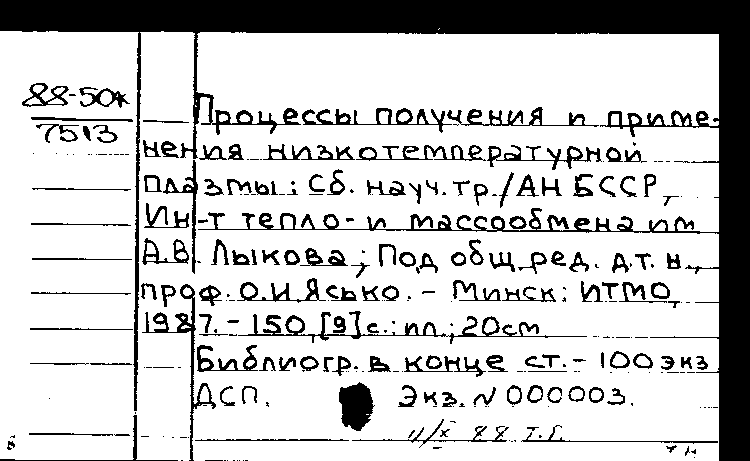 88-50к
7513
Процессы получения и приме-
нения низкотемпературной
плазмы: Сб. науч. тр./АН БССР,
Ин-т тепло- и массообмена им.
А.В. Лыкова; Под общ. ред. д.т.н.,
проф. О.И. Ясько. - Минск: ИТМО,
1987. - 150, [9] с.: ил.; 20см.
Библиогр. в конце ст. - 100 экз
ДСП. Экз. № 000003.
11/X 88